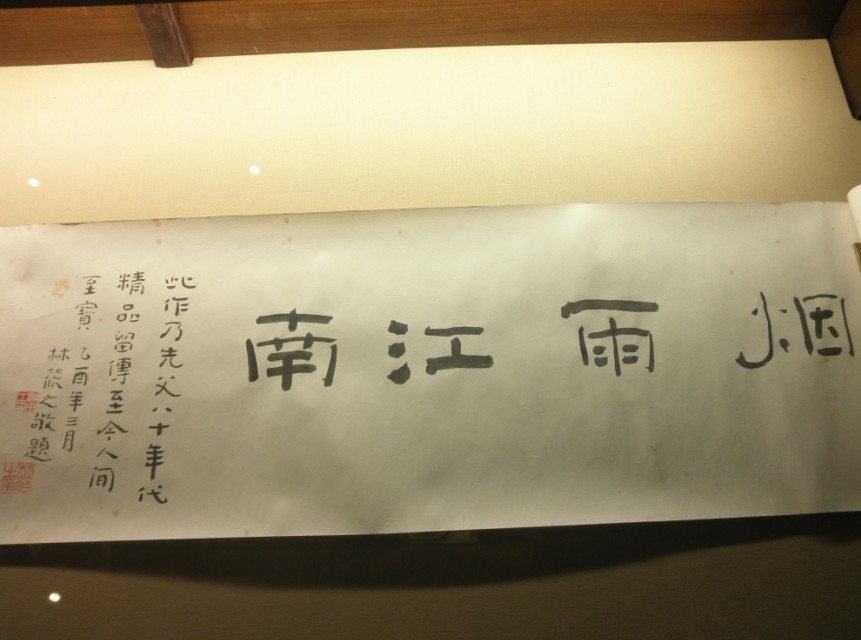 烟雨江南
此作乃先父八十年代
精品留傳至今人间
至寶 乙酉年三月
林筱之敬題